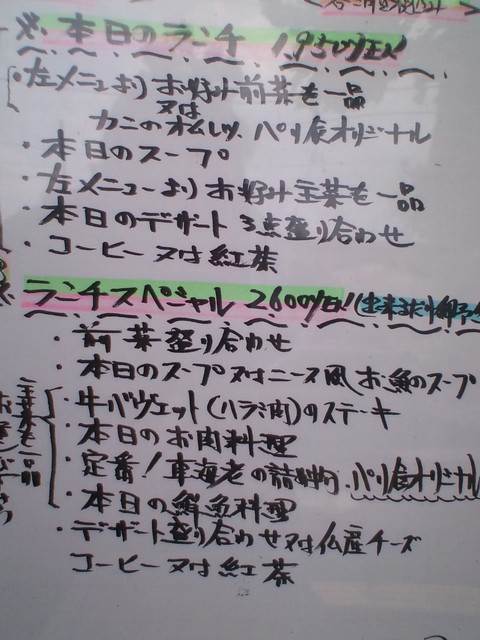 ※本日のランチ 1,950円
・左メニューより お好み前菜を一品
又は
カニのオムレツ パリ食オリジナル
・本日のスープ
・左メニューより お好み主菜を一品
・本日のデザート 3点盛り合わせ
・コーヒー 又は 紅茶
ランチスペシャル 2600円
・前菜盛り合わせ
・本日のスープ又はニース風お魚のスープ
主菜を一品
・牛バヴェット(ハラミ肉)のステーキ
・本日のお肉料理
・定番!車海老の パリ食オリジナル
・本日の鮮魚料理
・デザート盛り合わせ又は仏産チーズ
コーヒー 又は 紅茶